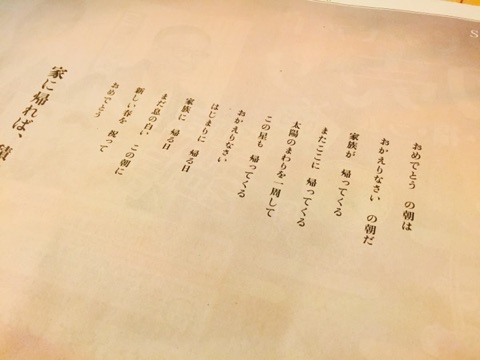 おめでとう の朝は
おかえりなさい の朝だ
家族が 帰ってくる
またここに 帰ってくる
太陽のまわりを一周して
この星も 帰ってくる
おかえりなさい
はじまりに 帰る日
家族に 帰る日
まだ息の白い この朝に
新しい春を 祝って
おめでとう
家に帰れば、積
S